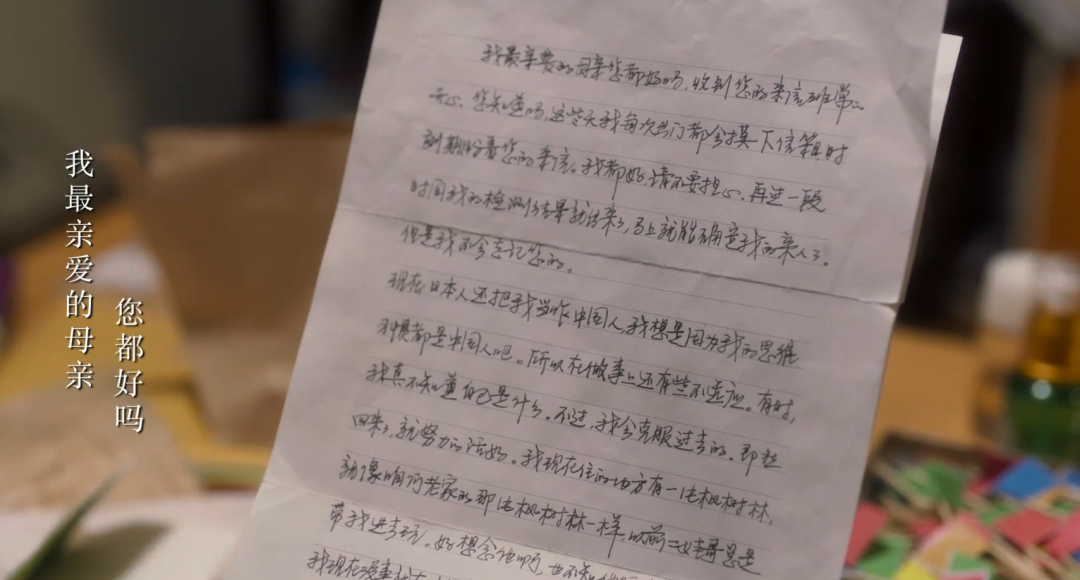 我最亲爱的母亲
您都好吗
我最亲爱的母亲您都好吗，收到您的来信非常
开心。您知道吗，这些天我每次出门都会摸下信箱，时
刻期盼着您的来信。我都好，请不要担心，再过一段
时间我的检测结果就出来了，马上就能确定我的亲人了。
但是我不会忘记您的。
现在日本人还把我当作中国人，我想是因为我的思维
习惯都是中国人吧。所以在做事上还有些不适应。有时，
我真不知道自己是什么。不过，我会克服过去的。即然
回来了，就努力的活好。我现在住的地方有一片枫树林，
就像咱们老家的那片枫树林一样，以前二哥总是
带我进去玩。好想念他啊，也不知
我现在没事就